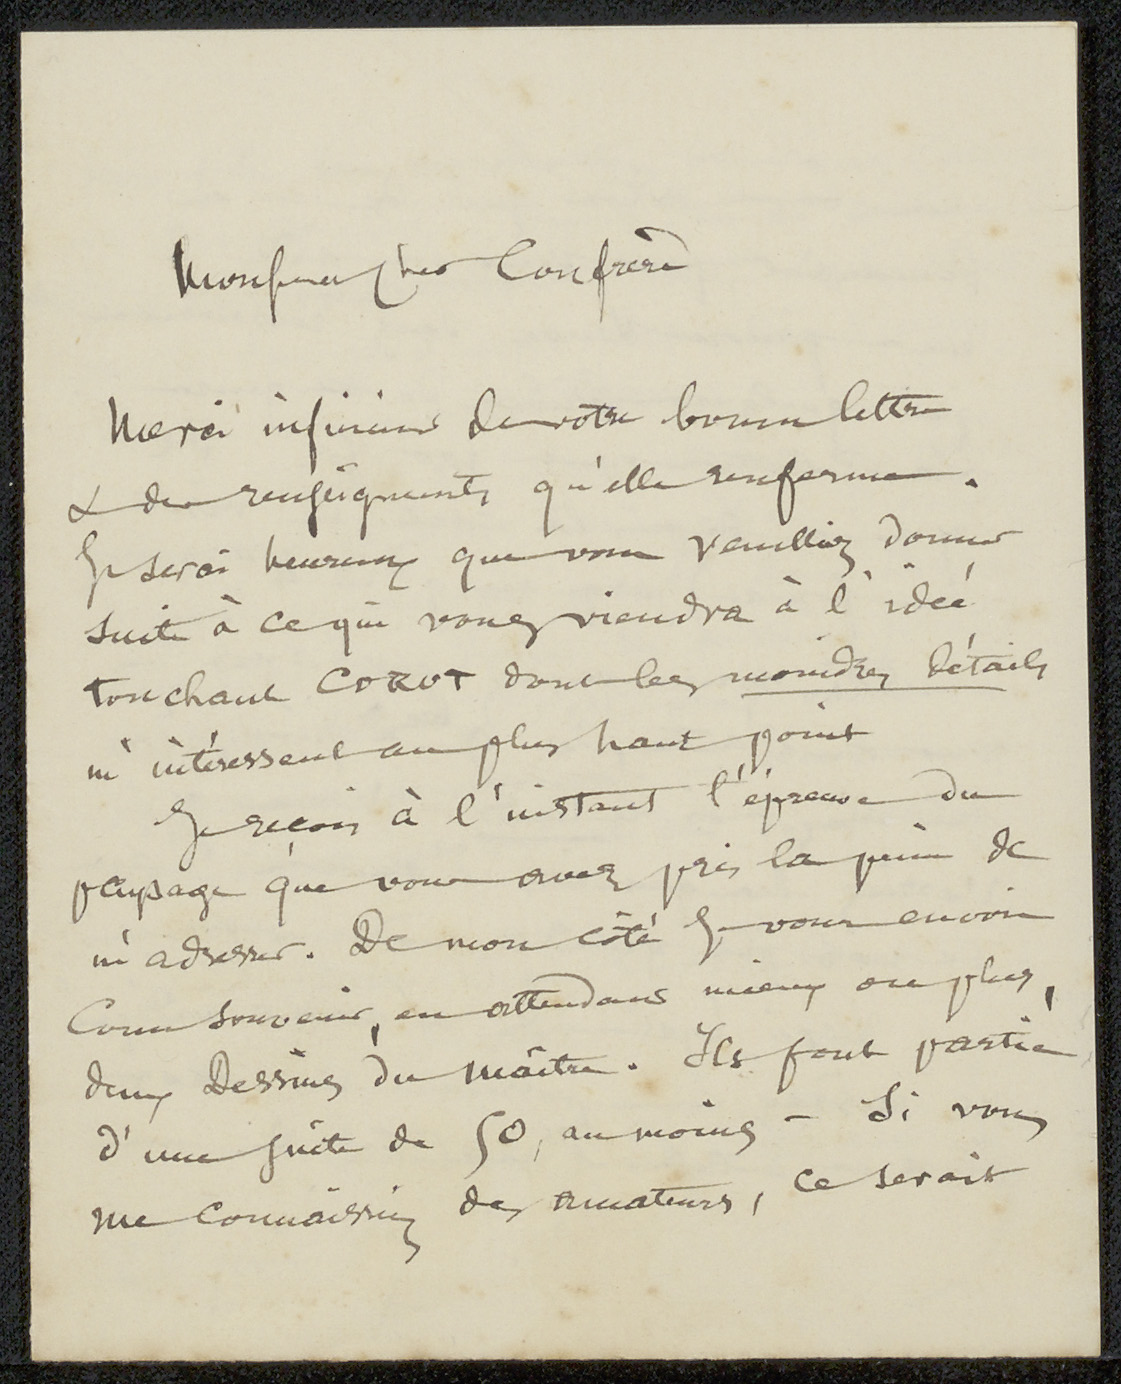 Monsieur & cher Confrère
Merci infiniment de votre bonne lettre
& des renseignements qu'elle renferme.
Je serai heureux que vous veuilliez donner
suite à ce qui vous viendra à l'idée
touchant COROT dont les moindres détails
m'intéressent au plus haut point
Je reçois à l'instant l'épreuve du
paysage que vous avez pris la peine de
m'adresser. De mon côté je vous envoie
comme souvenir, en attendant mieux ou plus,
deux Dessins du maître. Ils font partie
d'une suite de 50, au moins – Si vous
me connaissiez des amateurs, ce serait